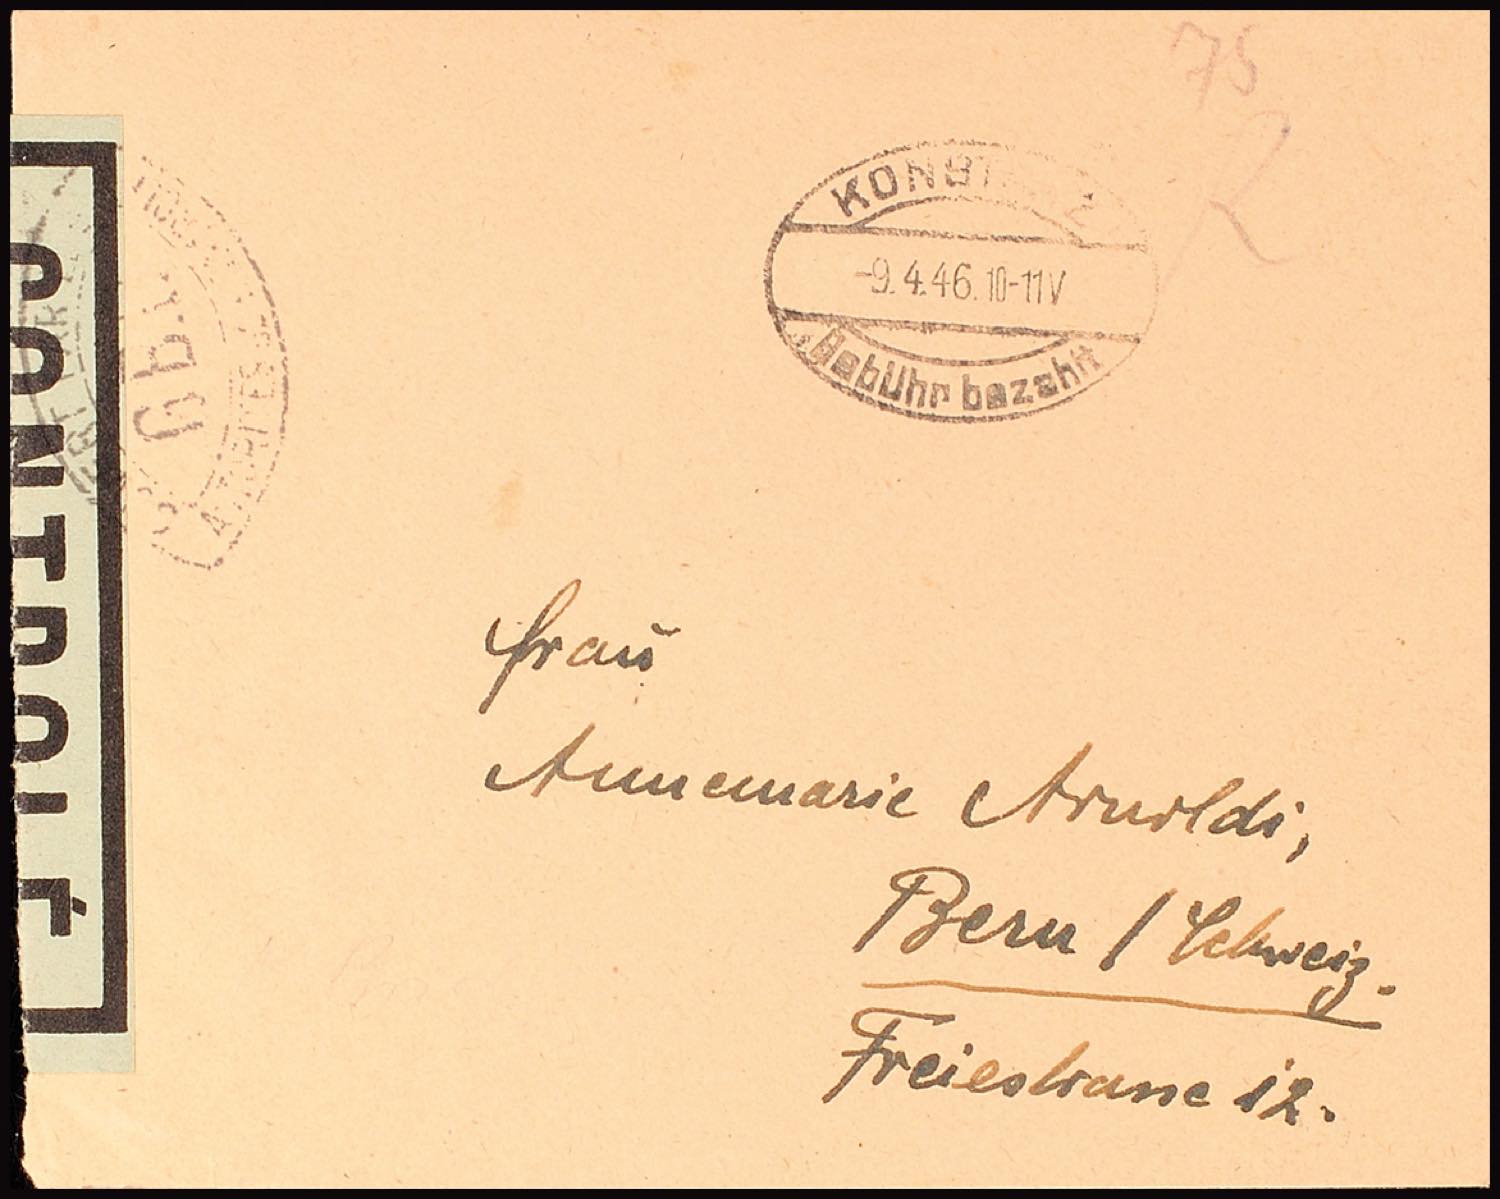 75
KONSTANZ
-9.4.46.10-11V
Gebühr bezahlt
CONTROLÉ
Frau
Annemarie Arnoldi,
Bern / Schweiz.
Freiestrasse 12.